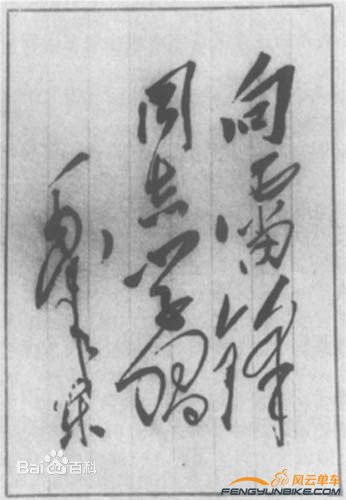 向雷锋
同志学习
毛泽东
Bai百科
风云单车
FENGYUNBIKE.COM